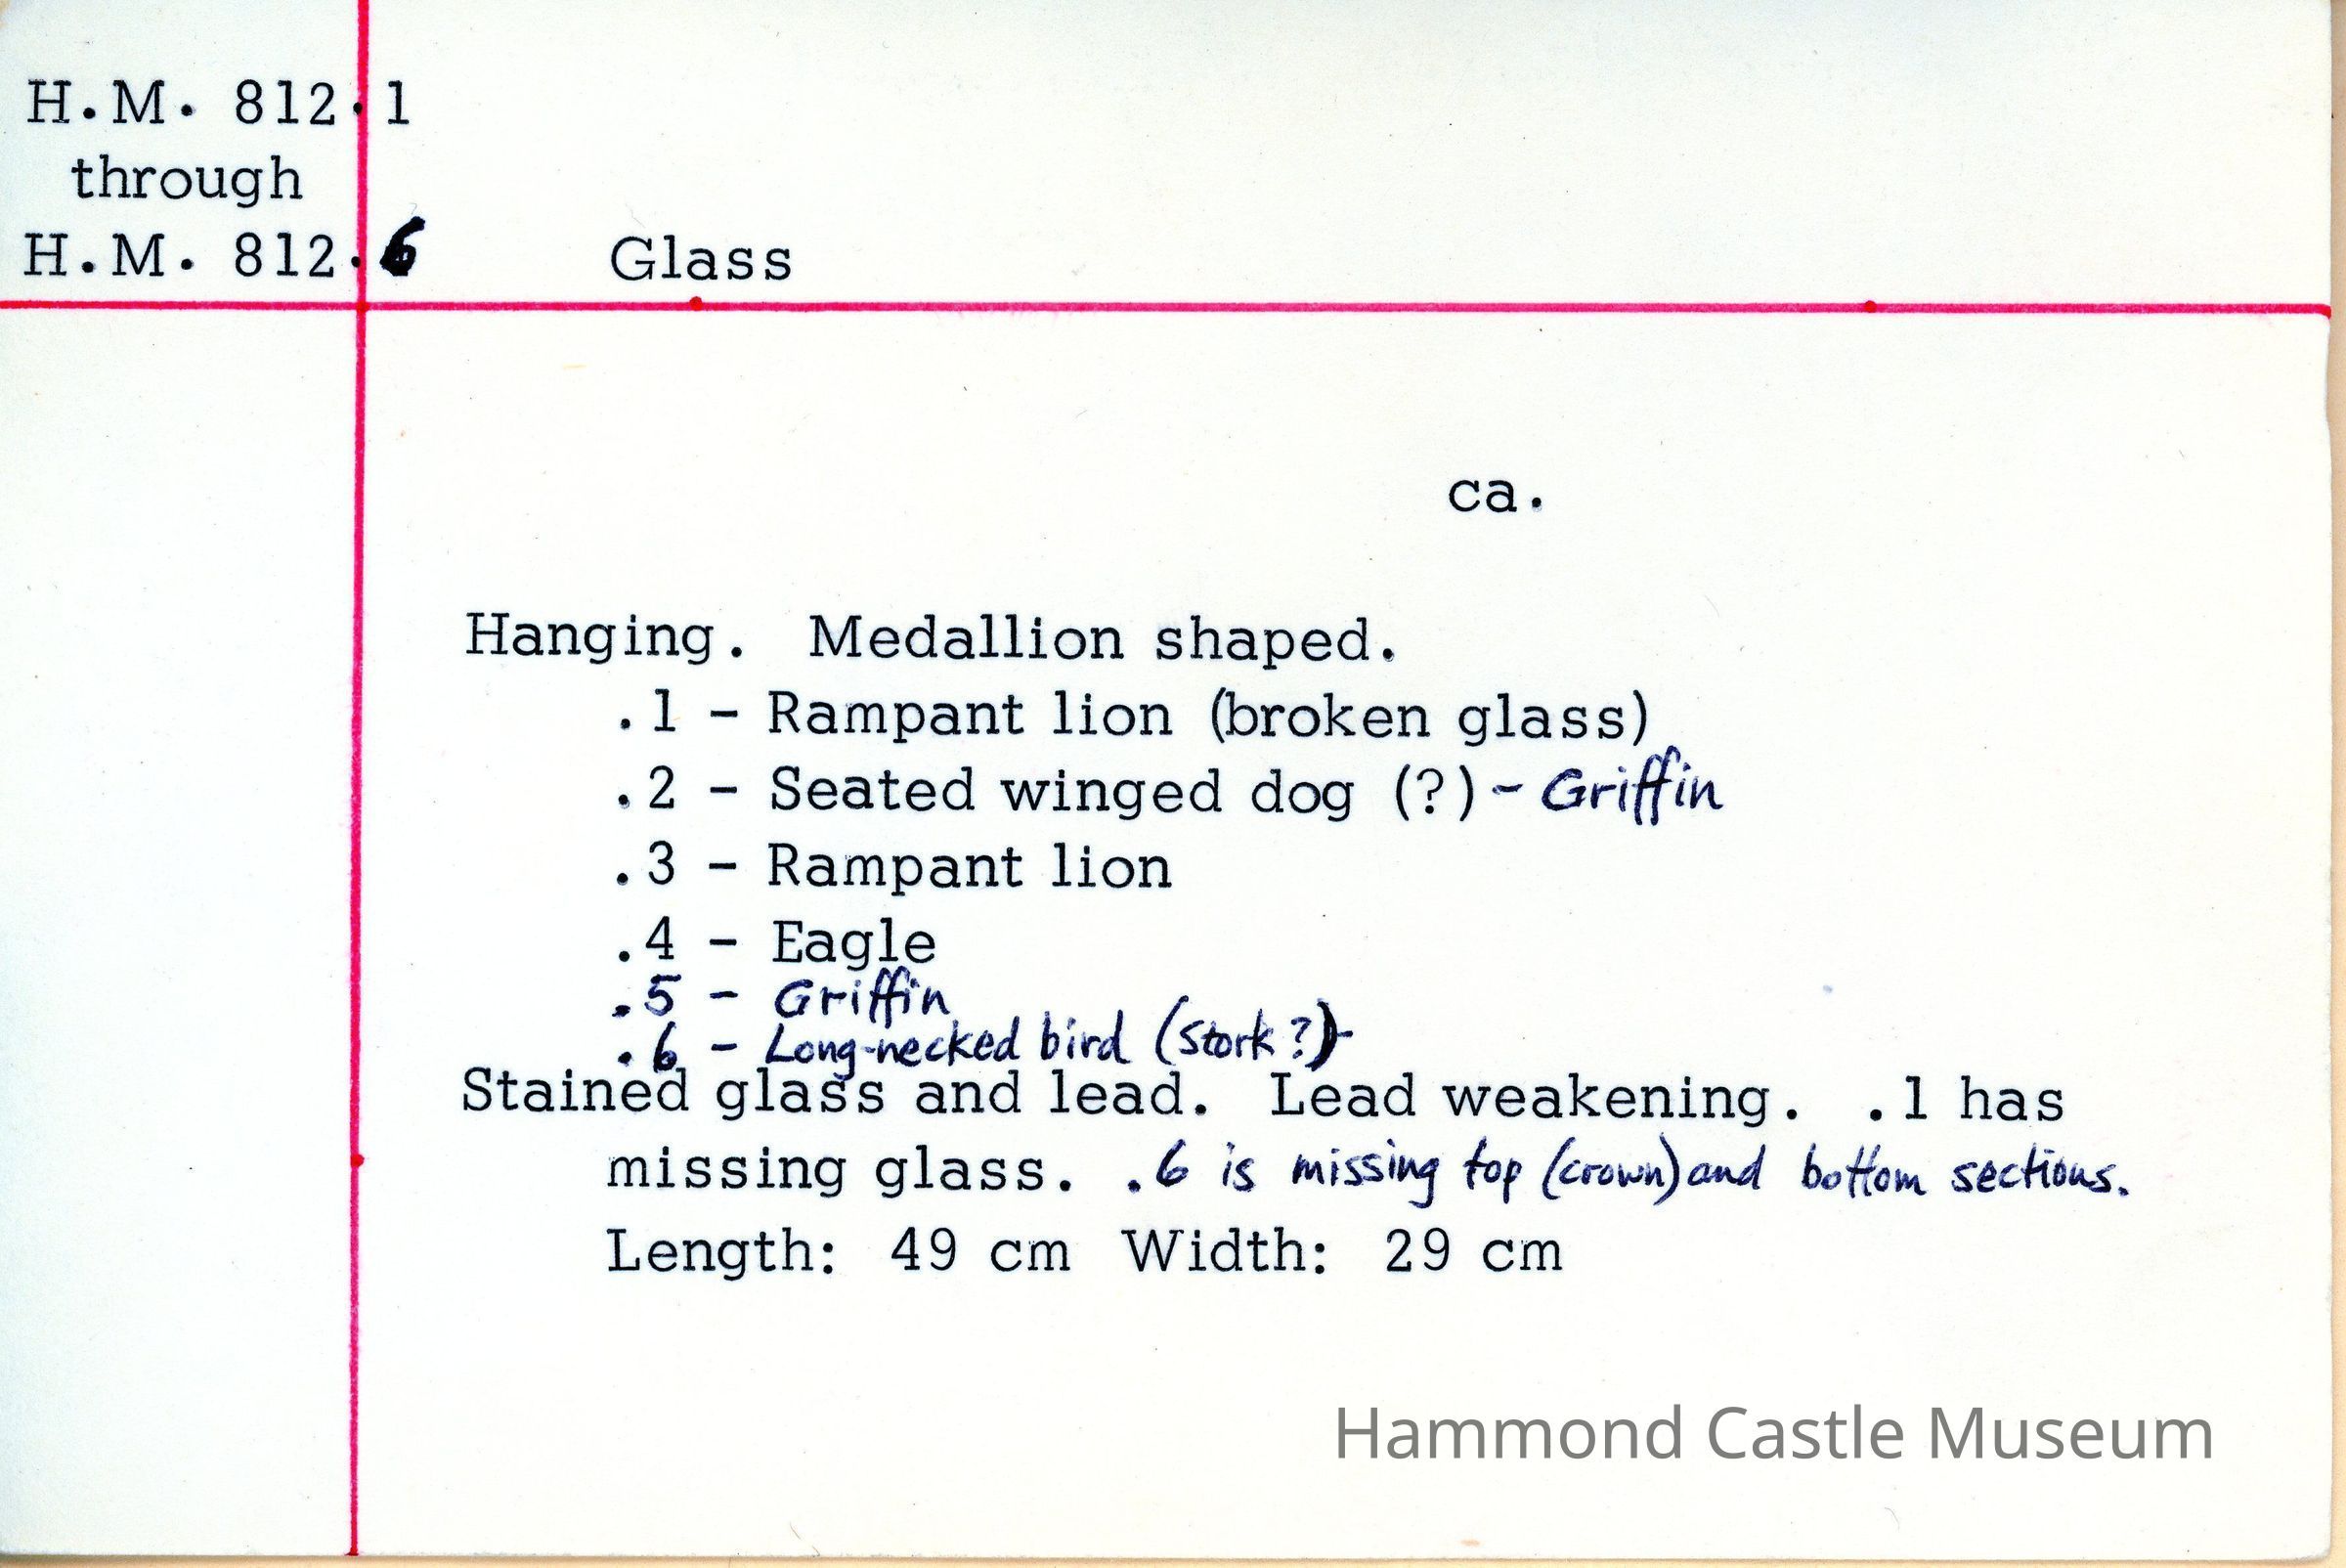 H.M. 812.1
through
H.M. 812.6
Glass
ca.
Hanging. Medallion shaped.
.1 - Rampant lion (broken glass)
.2 - Seated winged dog (?) - Griffin
.3 - Rampant lion
.4 - Eagle
.5 - Griffin
.6 - Long-necked bird (stork?)-
Stained glass and lead. Lead weakening. .1 has
missing glass. .6 is missing top (crown) and bottom sections.
Length: 49 cm Width: 29 cm
Hammond Castle Museum